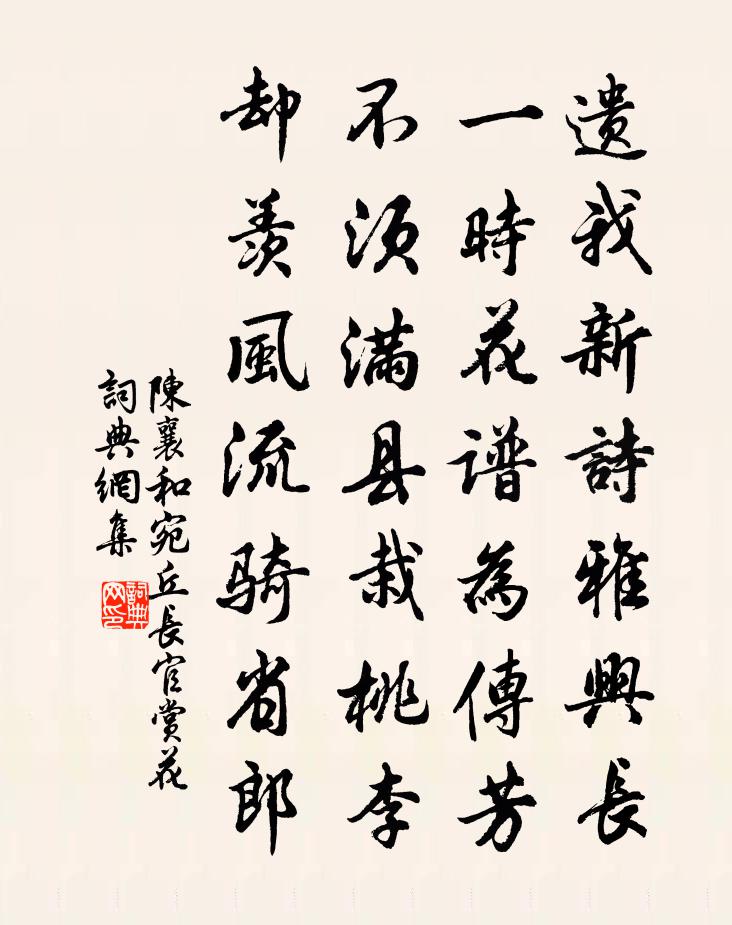 遗我新詩雅興長
一時花谱為傳芳
不须满县栽桃李
却羨風流骑省郎
陳襄和宛丘長官赏花
詞典網集
詞典网印